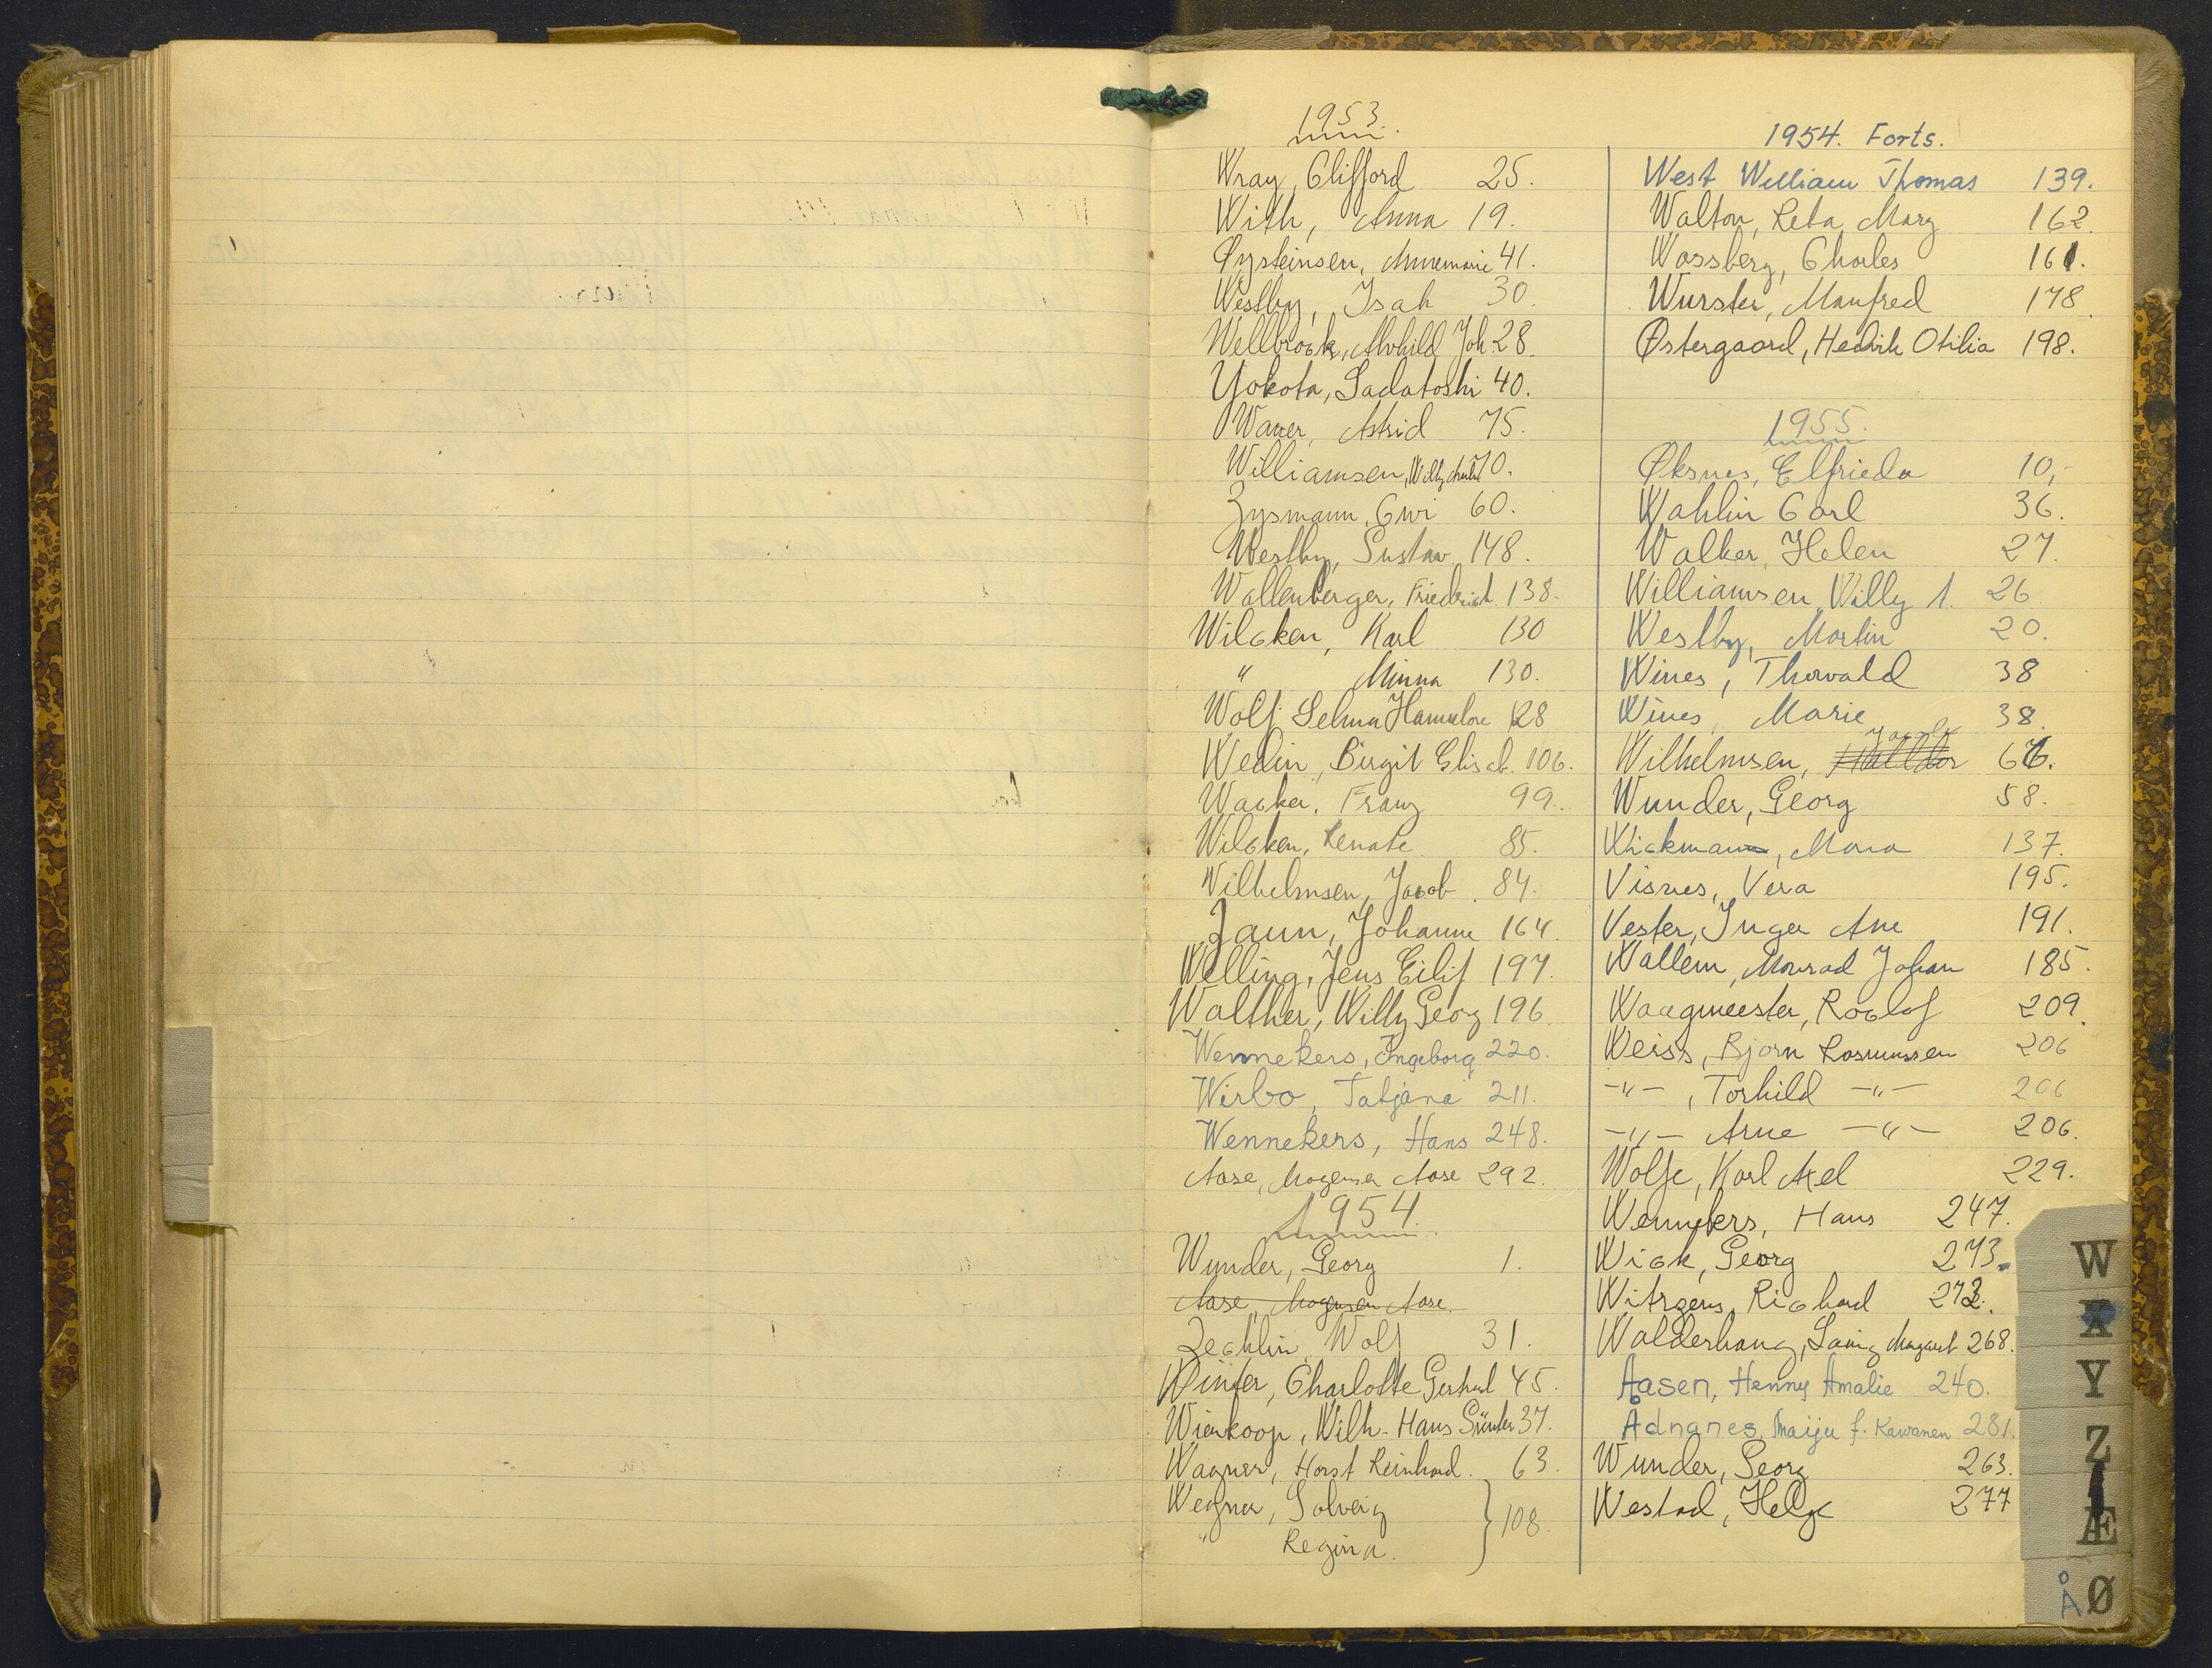 1953.
Wray, Clifford 25.
With, Anna 19.
Øysteinsen, Annemarie 41.
Westby, Isak 30.
Wellbrock, Alvhild Joh. 28.
Yokota, Sadatoshi 40.
Waner, Astrid 75.
Williamsen, Willy 70.
Zysmann, Cwi 60.
Westby, Gustav 148.
Wallenberger, Friedrich 138.
Wilcken, Karl 130
" Minna 130.
Wolf, Selma Hannelore 128
Wedin, Birgit Elisab. 106.
Wacker, Franz 99.
Wilcken, Renate 85.
Wilhelmsen, Jacob 84.
Zaun, Johanne 164.
Welling, Jens Eilif 197.
Walther, Willy Georg 196.
Wennekers, Ingeborg 220.
Wirbo, Tatjana 211.
Wennekers, Hans 248.
Aase, Mogensen Aase 292.
1954.
Wunder, Georg 1.
Aase, Mogensen Aase.
Zechlin, Wolf 31.
Winter, Charlotte Gertrud 45.
Wienkoop, Wilh. Hans Günter 37.
Wagner, Horst Reinhard. 63.
Wegner, Solveig } 108.
" Regina.
1954. Forts.
West William Thomas 139.
Walton, Reta Mary 162.
Wassberg, Charles 161.
Wurster, Manfred 178.
Østergaard, Hedvik Otilia 198.
1955.
Øksnes, Elfrieda 10,-
Wahlin Carl 36.
Walker, Helen 27.
Williamsen, Willy A. 26
Westby, Martin 20.
Wines, Thorvald 38
Wines, Marie 38.
Jacob
Wilhelmsen, Halldor 66.
Wunder, Georg 58.
Wickmann, Mara 137.
Visnes, Vera 195.
Vester, Inger Ane 191.
Wallem, Monrad Johan 185.
Waagmeester, Roelof 209.
Weiss, Bjørn Rasmussen 206
-"-, Torhild -"- 206
-"- Arne -"- 206.
Wolfe, Karl Axel 229.
Wennekers, Hans 247.
Wick, Georg 273.
Witrzens, Richard 272.
Walderhaug, Margaret 268.
Aasen, Henny Amalie 240.
Ådnanes, Maiju f. Kawanen 281.
Wunder, Georg 263.
Westad, Helge 277
W
X
Y
Z
Æ
Å Ø